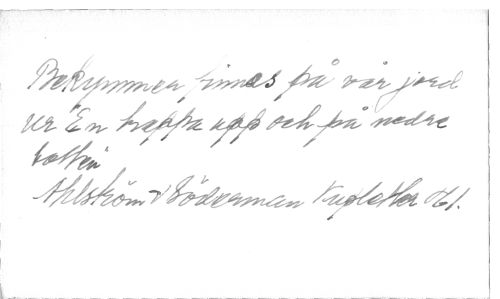 Bekymmer finnas på vår jord
ur "En trappa upp och på nedra
botten"
Ahlström & Söderman Kupletter H1.